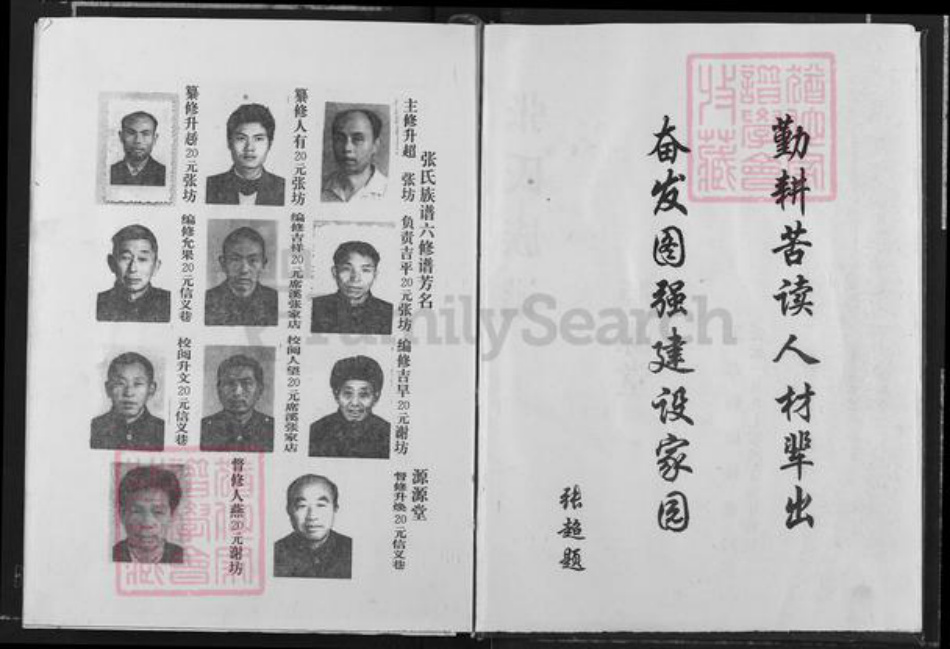 勤耕苦读人材辈出
奋发图强建设家园
张超题
张氏族谱六修谱芳名
源源堂
主修升超 张坊
负责吉平20元张坊
编修吉早20元谢坊
督修升焕20元信义巷
纂修人有20元张坊
编修吉祥20元席溪张家店
校阅人望20元席溪张家店
督修人燕20元谢坊
纂修升越20元张坊
编修允果20元信义巷
校阅升文20元信义巷
FamilySearch